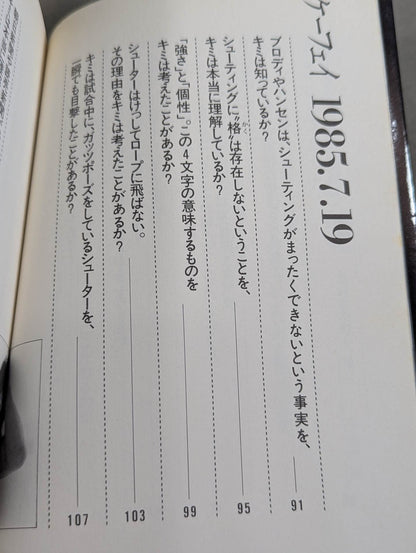 ケーフェイ 1985.7.19
ブロディやハンセンは、シューティングがまったくできないという事実を、
キミは知っているか? 91
シューティングに〝格〟は存在しないということを、
キミは本当に理解しているか? 95
「強さ」と「個性」。この4文字の意味するものを
キミは考えたことがあるか? 99
シューターはけっしてロープに飛ばない。
その理由をキミは考えたことがあるか? 103
キミは試合中に、ガッツポーズをしているシューターを、
一瞬でも目撃したことがあるか? 107